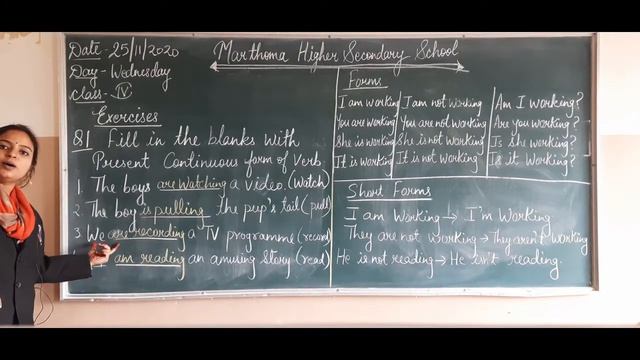 Date - 25/11/2020
Day - Wednesday
Class - IV
Marthoma Higher Secondary School
Exercises
Q1 Fill in the blanks with
Present Continuous form of Verb.
1. The boys are watching a video. (Watch)
2. The boy is pulling the pup's tail (pull)
3 We are recording a TV programme (record)
am reading an amusing story (read)
Forms
I am working I am not working Am I working?
You are working You are not working Are you working?
She is working She is not working Is she working?
It is working It is not working Is it working?
Short Forms
I am working → I'm working
They are not working → They aren't working
He is not reading → He isn't reading.